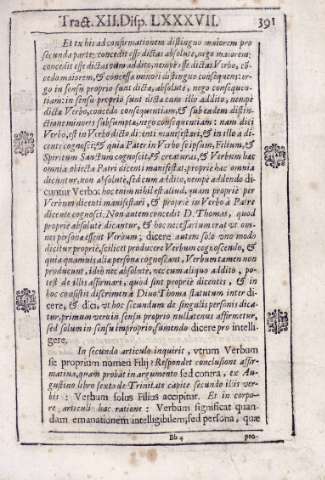 Tract. XII. Disp. LXXXVII. 391
Et tu his ad confirmationem distinguo maiorem pro
secunda parte: concedit esse dictas absolute, nego maiorem:
concedit esse dictas cum addito, nempè esse dictas Verbo, cõ-
cedo maiorem, & concessa minori distinguo consequens: er-
go in sensu proprio sunt dicta, absolutè, nego consequen-
tiam: in sensu proprio sunt dicta cum illo addito, nempè
dicta Verbo, concedo consequentiam, & sub eadem distin-
ctione minori subsumpta, nego consequentiam: nam dici
Verbo, est in Verbo dicto dicenti manifestari, & in illo a di-
cente cognosci: & quia Pater in Verbo se ipsum, Filium, &
Spiritum Sanctum cognoscit: & creaturas, & Verbum hæc
omnia obiecta Patri dicenti manifestat: propriè hæc omnia
dicuntur, non absolutè, sed cum addito, nempè addendo di-
cuntur Verbo: hoc enim nihil est aliud, quam propriè per
Verbum dicenti manifestari, & propriè in Verbo à Patre
dicente cognosci. Non autem concedit D. Thomas, quod
propriè absolutè dicantur, & hoc necessarium erat vt om-
nes personæ essent Verbum; dicere autem solo vno modo
dicitur propriè, scilicet producere Verbum cognoscendo, &
quia quamuis aliæ personæ cognoscant, Verbum tamen non
producunt, ideò nec absolutè, nec cum aliquo addito, po-
test de illis affirmari, quod sint propriè dicentes, & in
hoc consistit discrimen à Diuo Thoma statutum inter di-
cere, & dici, vt hoc secundum de singulis personis dica-
tur, primum verò in sensu proprio nullatenus affirmetur,
sed solum in sensu improprio, sumendo dicere pro intelli-
gere.
In secundo articulo inquirit, vtrum Verbum
sit proprium nomen Filij? Respondet conclusione affir-
matiua, quam probat in argumento sed contra, ex Au-
gustino libro sexto de Trinitate capite secundo illis ver-
bis: Verbum solus Filius accipitur. Et in corpo-
re articuli hac ratione: Verbum significat quan-
dam emanationem intelligibilem, sed persona, quæ
Bb 4 pro-